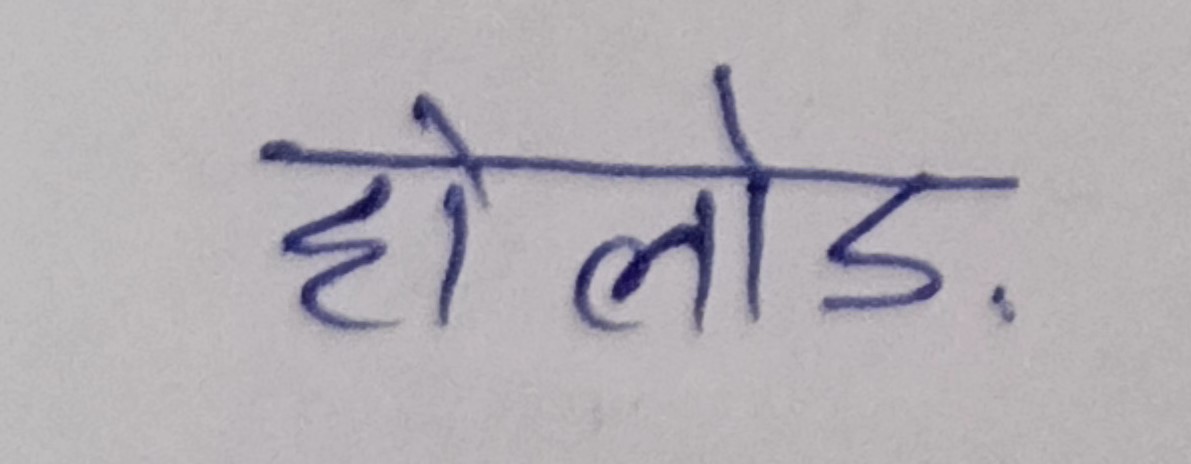 होलोड.